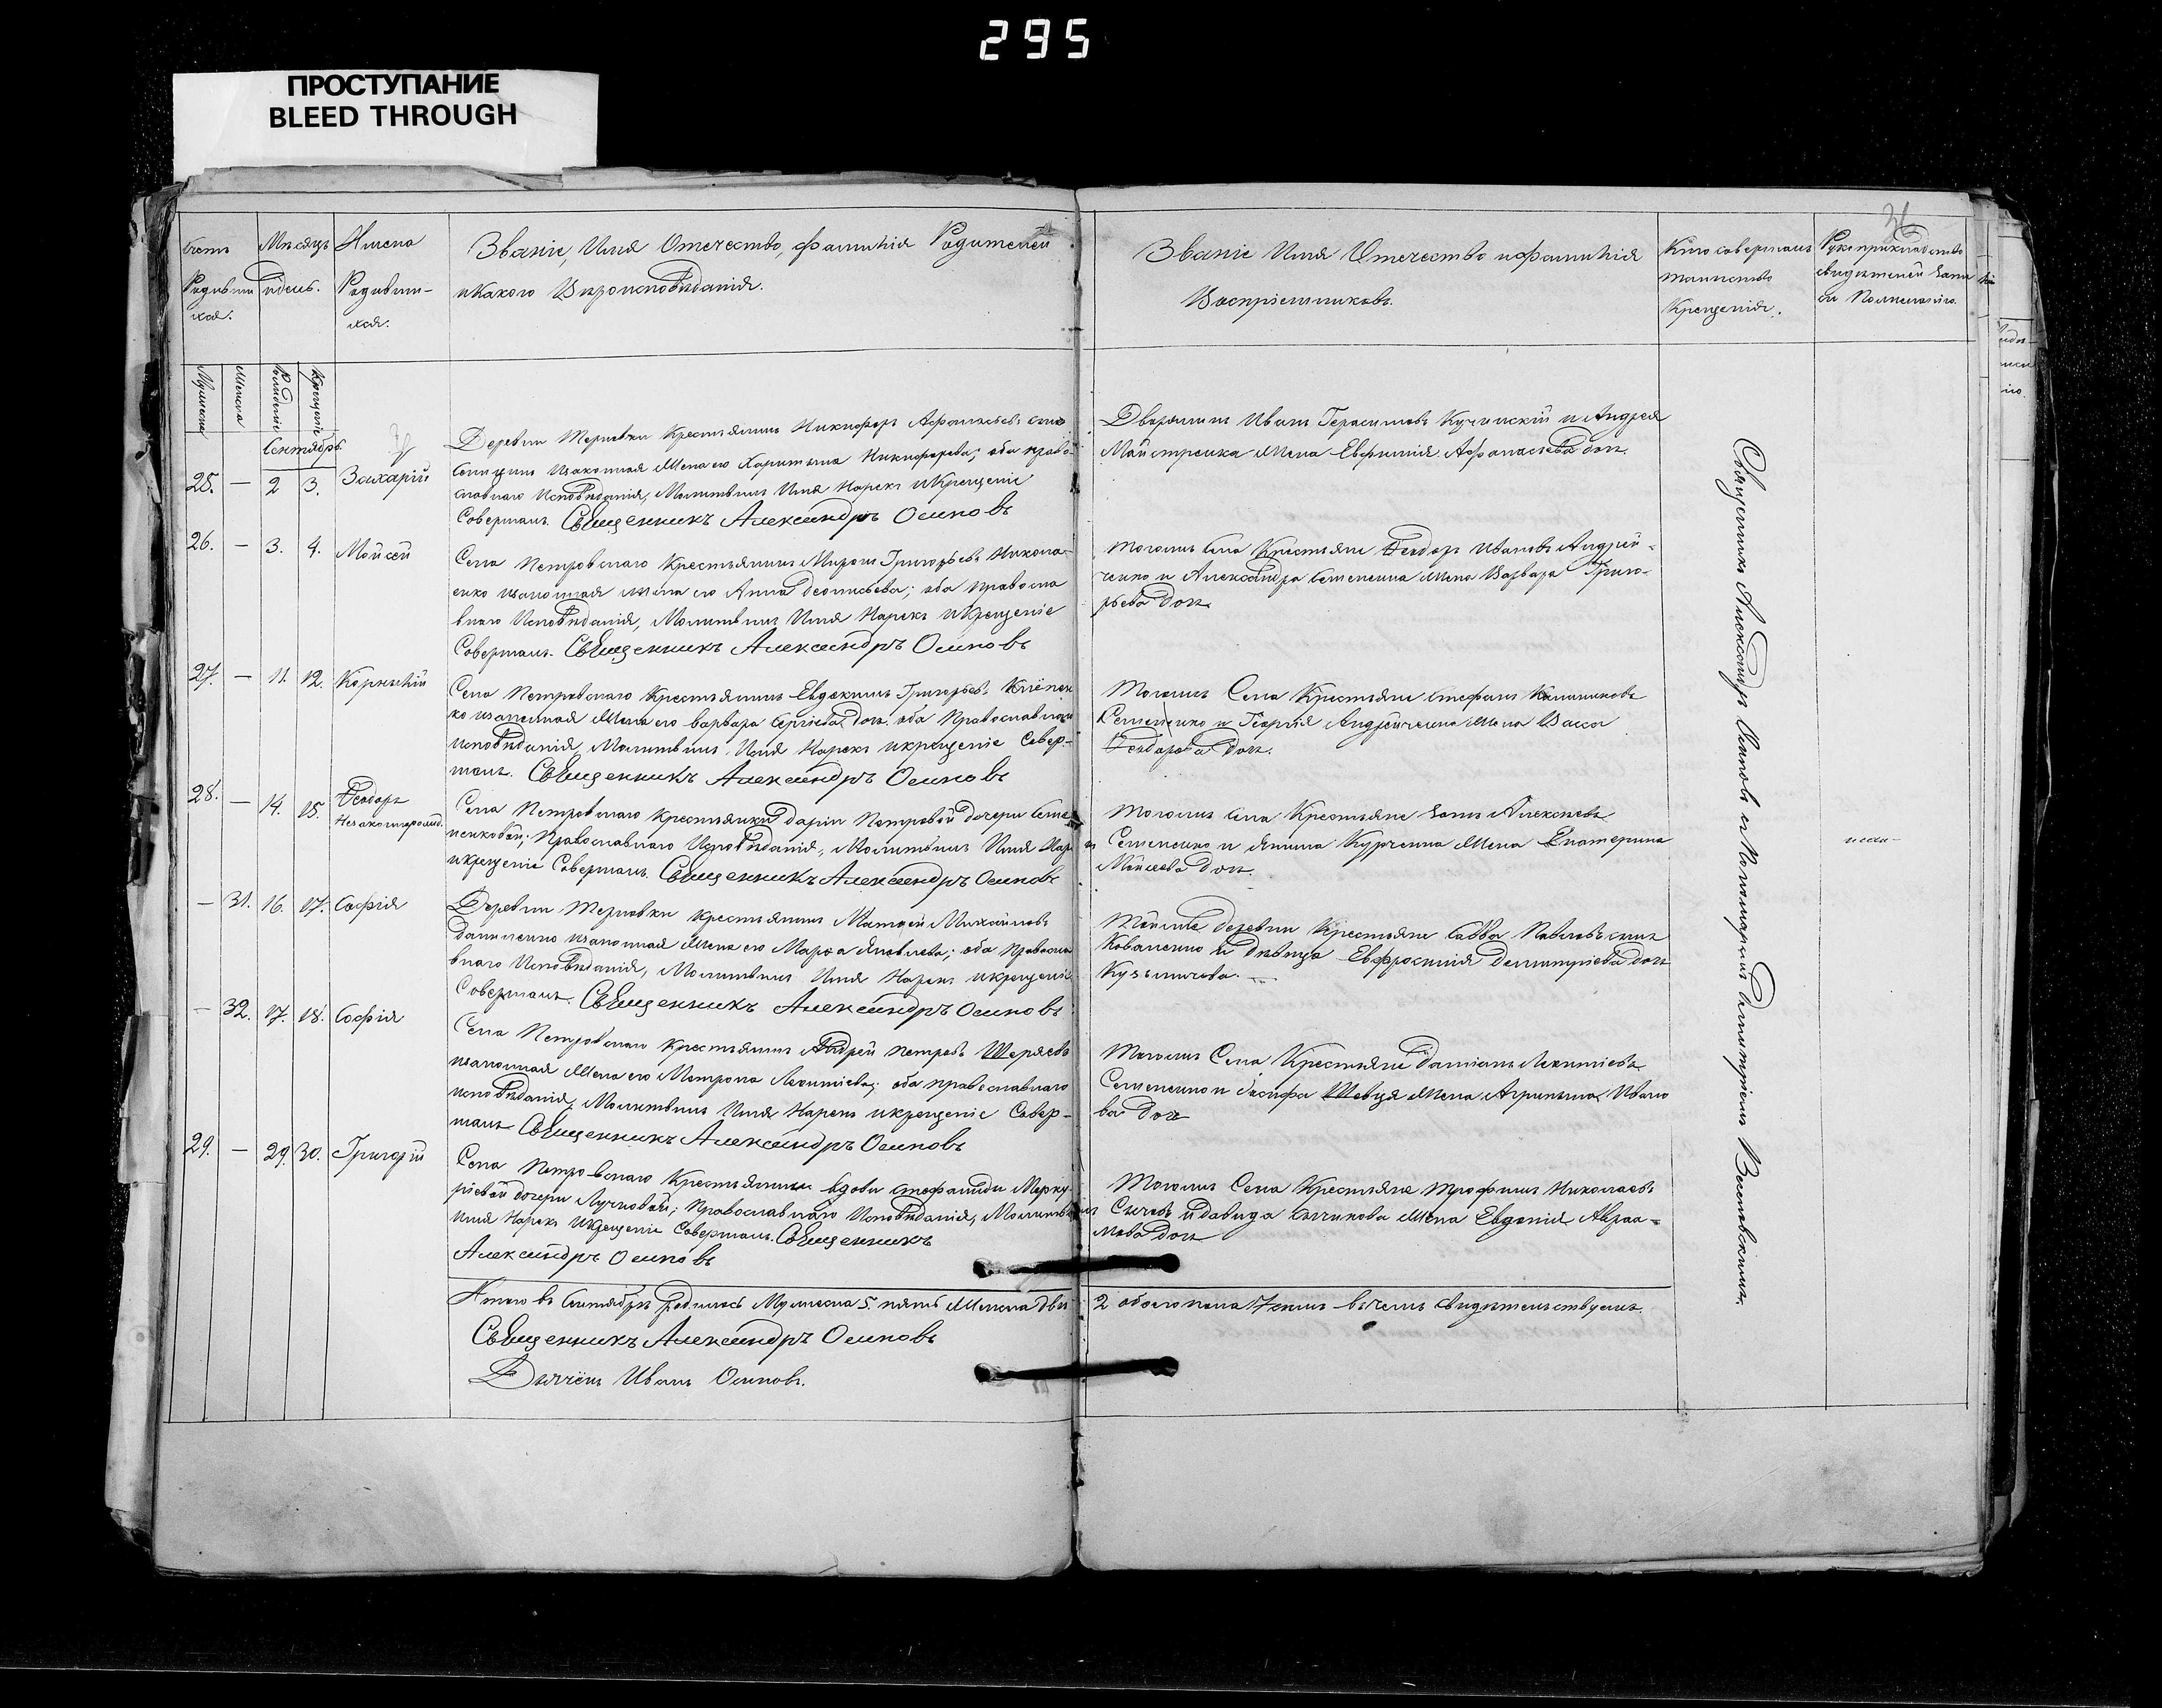 295
ПРОСТУПАНИЕ
BLEED THROUGH
36
Счетъ
Родивши
хся.
Мѣсяцъ
и день.
Имена
Родивши-
хся.
Званіе, Имя Отечество, фамилія Родителей
и какого Вѣроисповѣданія.
Званіе Имя Отечество и фамилія
Воспріемниковъ.
Кто совершалъ
таинство
Крещенія.
Рукоприкладство
свидѣтелей запи
си по желанію.
Мужеска
Женска
Рожденіе
Крещеніе
Сентябрь.
25. — 2 3. Захарій
Деревни Терновки Крестьянинъ Никифоръ Афанасьевъ
законная жена его Харитина Никифорова; оба право-
славнаго Исповѣданія, Молитвилъ Имя Нарекъ и Крещеніе
Совершалъ. Священникъ Александръ Осиповъ
Дворянинъ Иванъ Герасимовъ Кучинскій и Андрея
Майстренка жена Евфимія Афанасьева дочь.
26. — 3. 4. Мойсей
Села Петровскаго Крестьянинъ Миронъ Григорьевъ Никола-
енко законная жена его Анна Леонтьева; оба правосла
внаго Исповѣданія, Молитвилъ Имя Нарекъ и Крещеніе
Совершалъ. Священникъ Александръ Осиповъ
Тогожъ Села Крестьяне Феодоръ Ивановъ Андрей-
ченко и Александра Семененка жена Варвара Григо-
рьева дочь
27. — 11. 12. Корнилій
Села Петровскаго Крестьянинъ Евдокимъ Григорьевъ
ко законная жена его Варвара Сергіева дочь. оба Православнаго
исповѣданія, Молитвилъ, Имя Нарекъ и крещеніе Совер-
шалъ. Священникъ Александръ Осиповъ
Тогожъ Села Крестьяне Стефанъ
Семененко и Георгія Андрейченка жена Васса
Феодорова дочь.
28. — 14. 15. Феодоръ
Незаконнорожд.
Села Петровскаго Крестьянки Даріи Петровой дочери Семе
ненковой; Православнаго Исповѣданія, Молитвилъ Имя Нарекъ
и крещеніе Совершалъ. Священникъ Александръ Осиповъ
Тогожъ Села Крестьяне Алексѣевъ
Семененко и Курченка жена Екатерина
Мойсеева дочь.
— 31. 16. 17. Софія
Деревни Терновки крестьянинъ Матфей Михайловъ
Даниленко законная жена его Марфа Яковлева; оба Правосла
внаго Исповѣданія, Молитвилъ Имя Нарекъ и крещеніе
Совершалъ. Священникъ Александръ Осиповъ
Тойжъ деревни Крестьяне Савва Павловъ сынъ
Коваленко и дѣвица Евфросинія Димитріева дочь
— 32. 17. 18. Софія
Села Петровскаго крестьянинъ Андрей Петровъ
законная жена его Матрона Леонтіева; оба православнаго
исповѣданія, Молитвилъ Имя Нарекъ и крещеніе Совер-
шалъ Священникъ Александръ Осиповъ
Тогожъ Села Крестьяне Даміанъ Леонтіевъ
Семененко и Іосифа Шевця жена Агрипина Ивано
ва дочь
29. — 29. 30. Григорій
Села Петровскаго Крестьянки вдовы Стефаниды Мерку-
ріевой дочери Лучковой; Православнаго Исповѣданія, Молитвилъ
Имя Нарекъ и Крещеніе Совершалъ. Священникъ
Александръ Осиповъ
Тогожъ Села Крестьяне Трофимъ Николаевъ
и Давида жена Евдокія Авраа-
мова дочь
Священникъ Александръ Осиповъ съ Пономаремъ Димитріемъ
Итого въ Сентябрѣ родилось Мужеска 5. пять Женска двѣ
2 обоего пола 7 въ чемъ свидѣтельствуемъ
Священникъ Александръ Осиповъ
Дьячёкъ Иванъ Осиповъ.